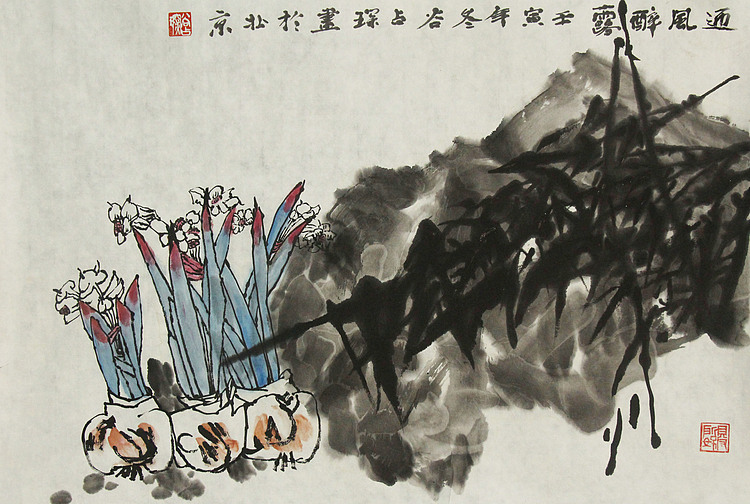 迎風醉 壬寅年冬谷占琛畫於北京